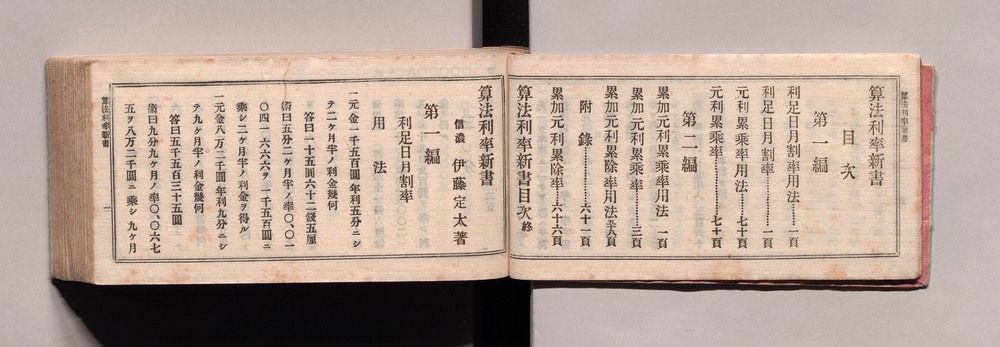 算法利率新書
算法利率新書
目次
第一編
利足日月割率用法……一頁
利足日月割率…………一頁
元利累乘率用法……七十頁
元利累乘率…………七十頁
第二編
累加元利累乘率用法 一頁
累加元利累乘率………三頁
累加元利累除率用法 頁
附 錄…………六十一頁
累加元利累除率…六十六頁
算法利率新書目次終
算法利率新書
信濃 伊藤定太著
第一編
利足日月割率
用法
一元金一千五百圓年利五分ニシ
テ二ケ月半ノ利金幾何
答曰一十五圓六十二錢五厘
術曰五分二ケ月半ノ率〇、〇一
〇四一六六六ヲ一千五百圓ニ
乘シ二ケ月半ノ利金ヲ得ル
一元金八万二千圓年利九分ニシ
テ九ケ月半ノ利金幾何
答曰五千五百三十五圓
術曰九分九ケ月ノ率〇、〇六七
五ヲ八万二千圓ニ乘シ九ケ月
算法利率新書
一